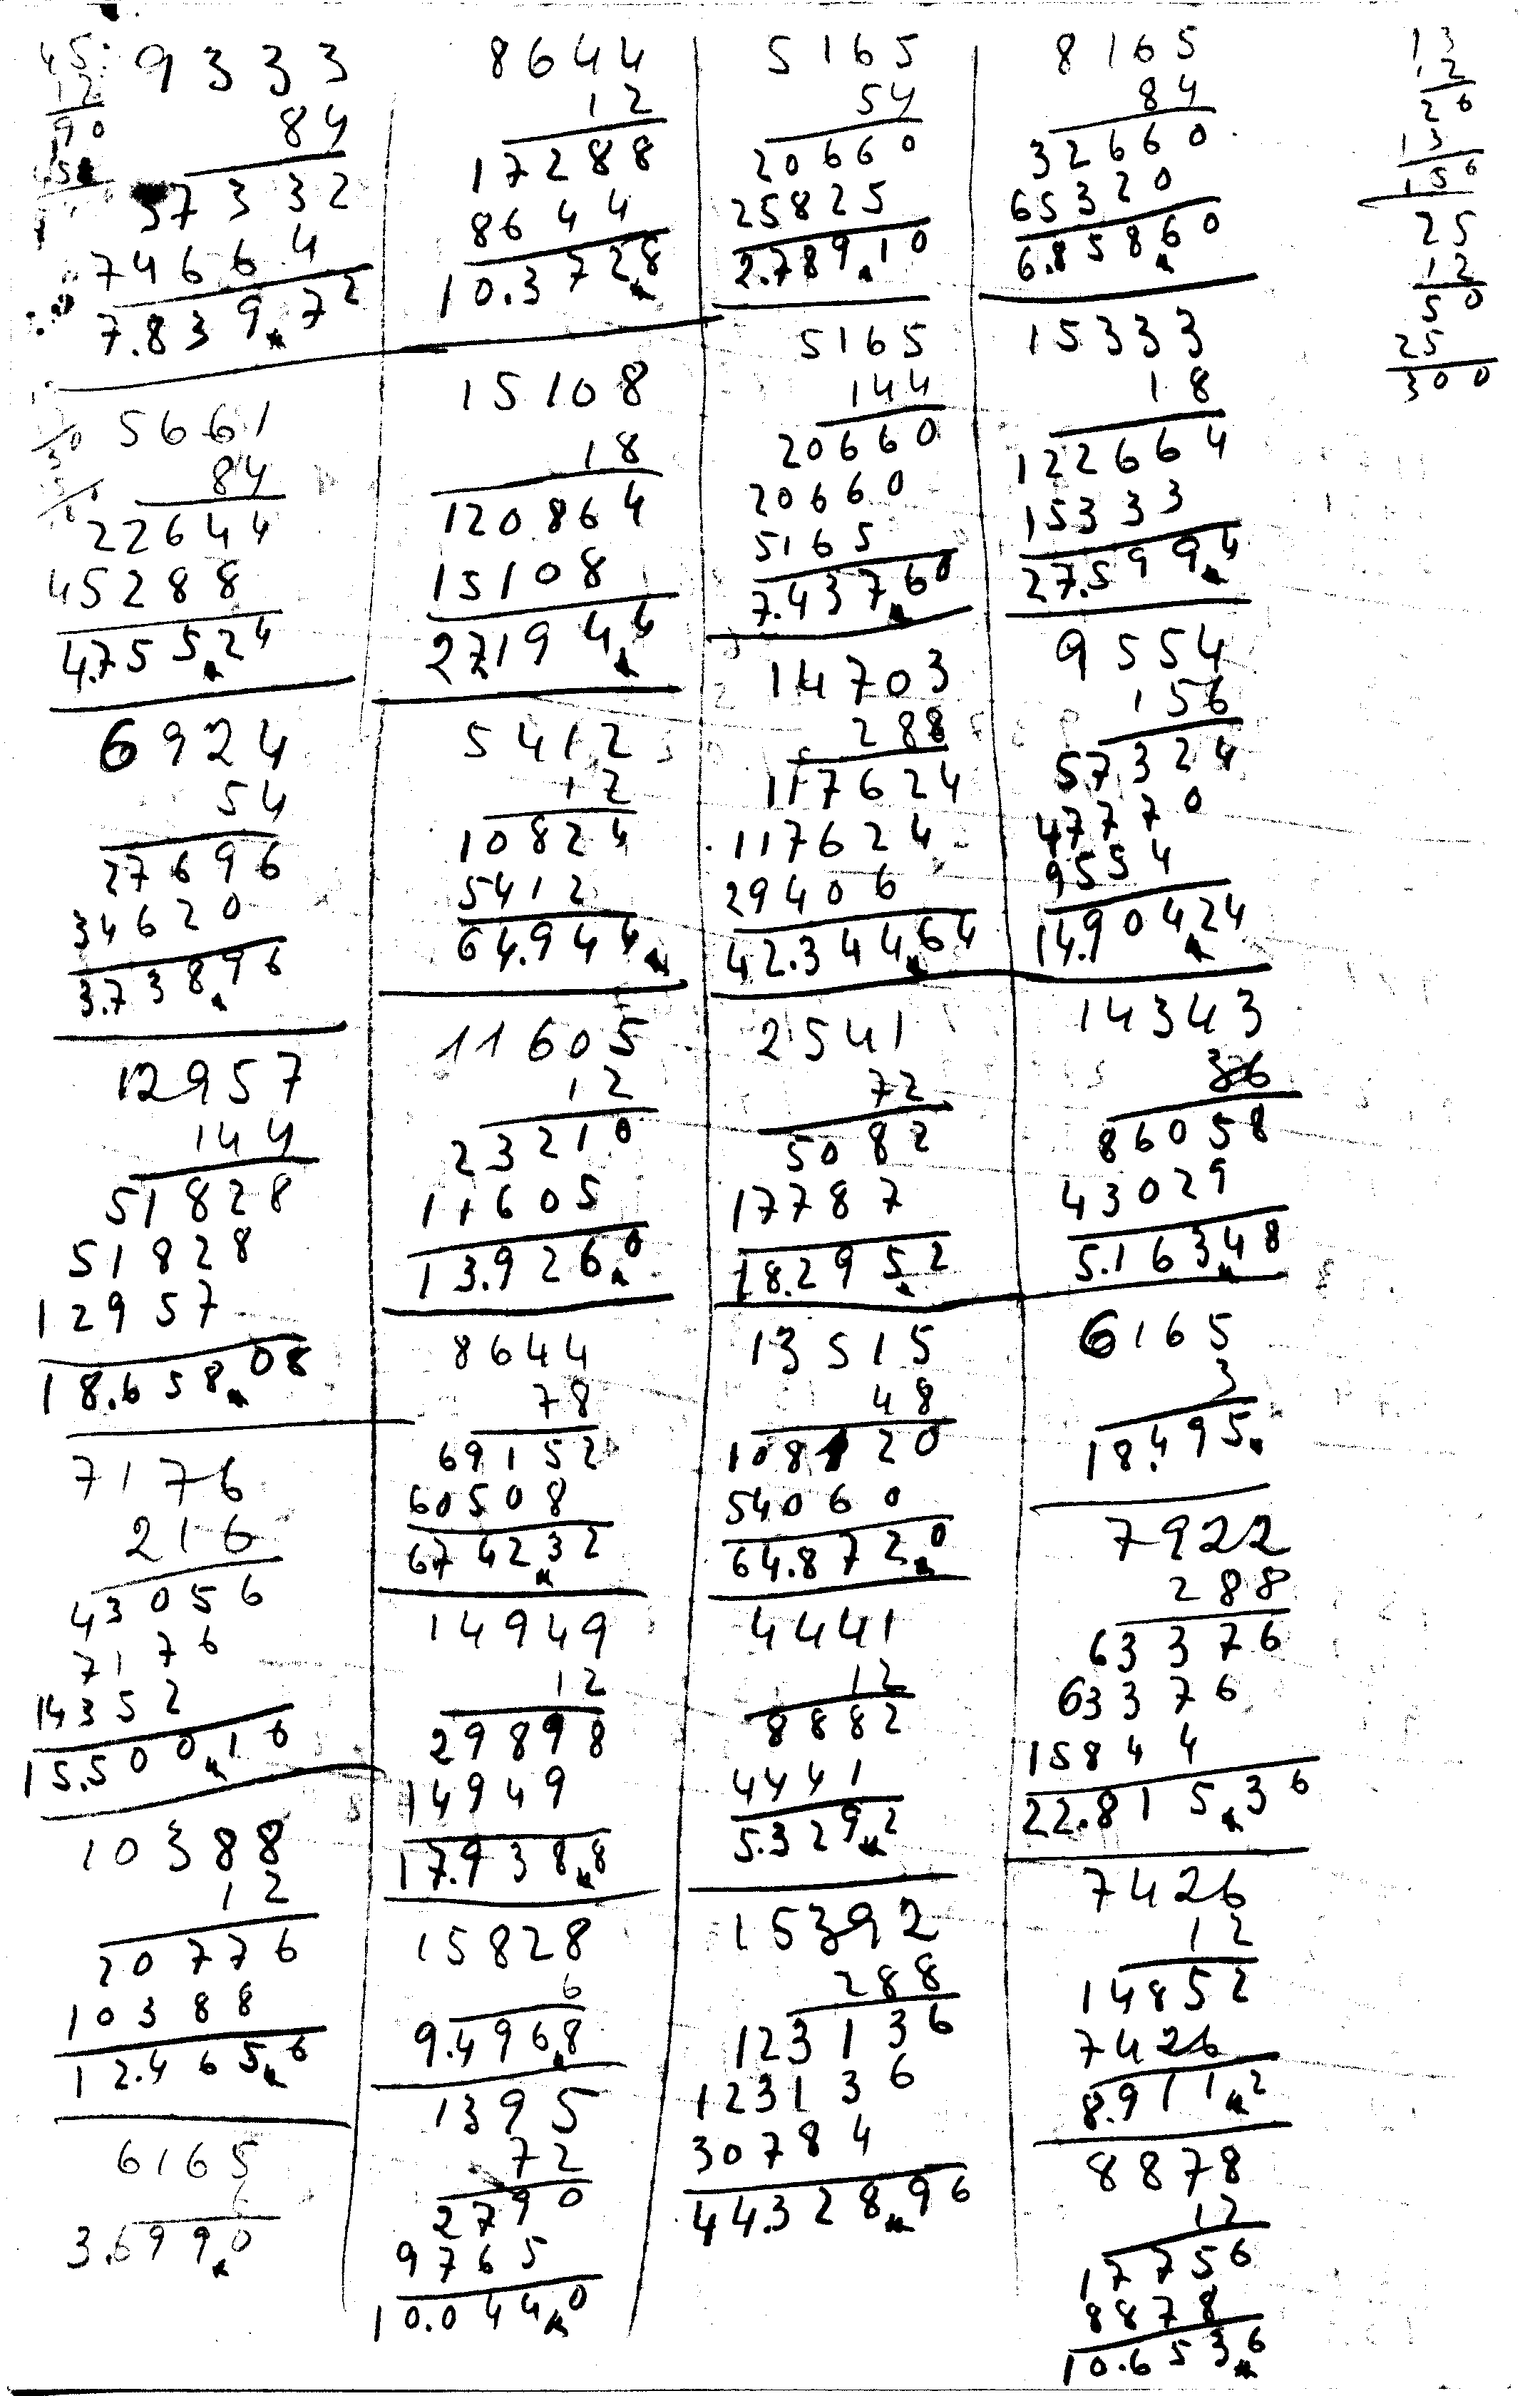 9333
84
37332
74664
7.839.72
5661
84
22644
45288
4.755.24
6924
54
27696
34620
3.738.96
12957
144
51828
51828
12957
18.658.08
7176
216
43056
7176
14352
15.500.16
10388
12
20776
10388
12.465.6
6165
6
3.699.0
8644
12
17288
8644
10.372.8
15108
18
120864
15108
27.194.4
5412
12
10824
5412
64.944.
11605
12
23210
11605
13.926.0
8644
78
69152
60508
6.742.32
14949
12
29898
14949
17.938.8
15828
6
9.496.8
1395
72
2790
9765
10.044.0
5165
54
20660
25825
2.789.10
5165
144
20660
20660
5165
7.437.60
14703
288
117624
117624
29406
42.344.64
2541
72
5082
17787
18.295.2
13515
48
108120
54060
64.872.0
4441
12
8882
4441
5.329.2
15392
288
123136
123136
30784
44.328.96
8165
84
32660
65320
6.858.60
15333
18
122664
15333
27.599.4
9554
156
57324
47770
9554
14.904.24
14343
36
86058
43029
5.163.48
6165
3
18.495.
7922
288
63376
63376
15844
22.815.36
7426
12
14852
7426
8.911.2
8878
12
17756
8878
10.653.6
13
12
26
13
156
25
12
50
25
300
45
12
90